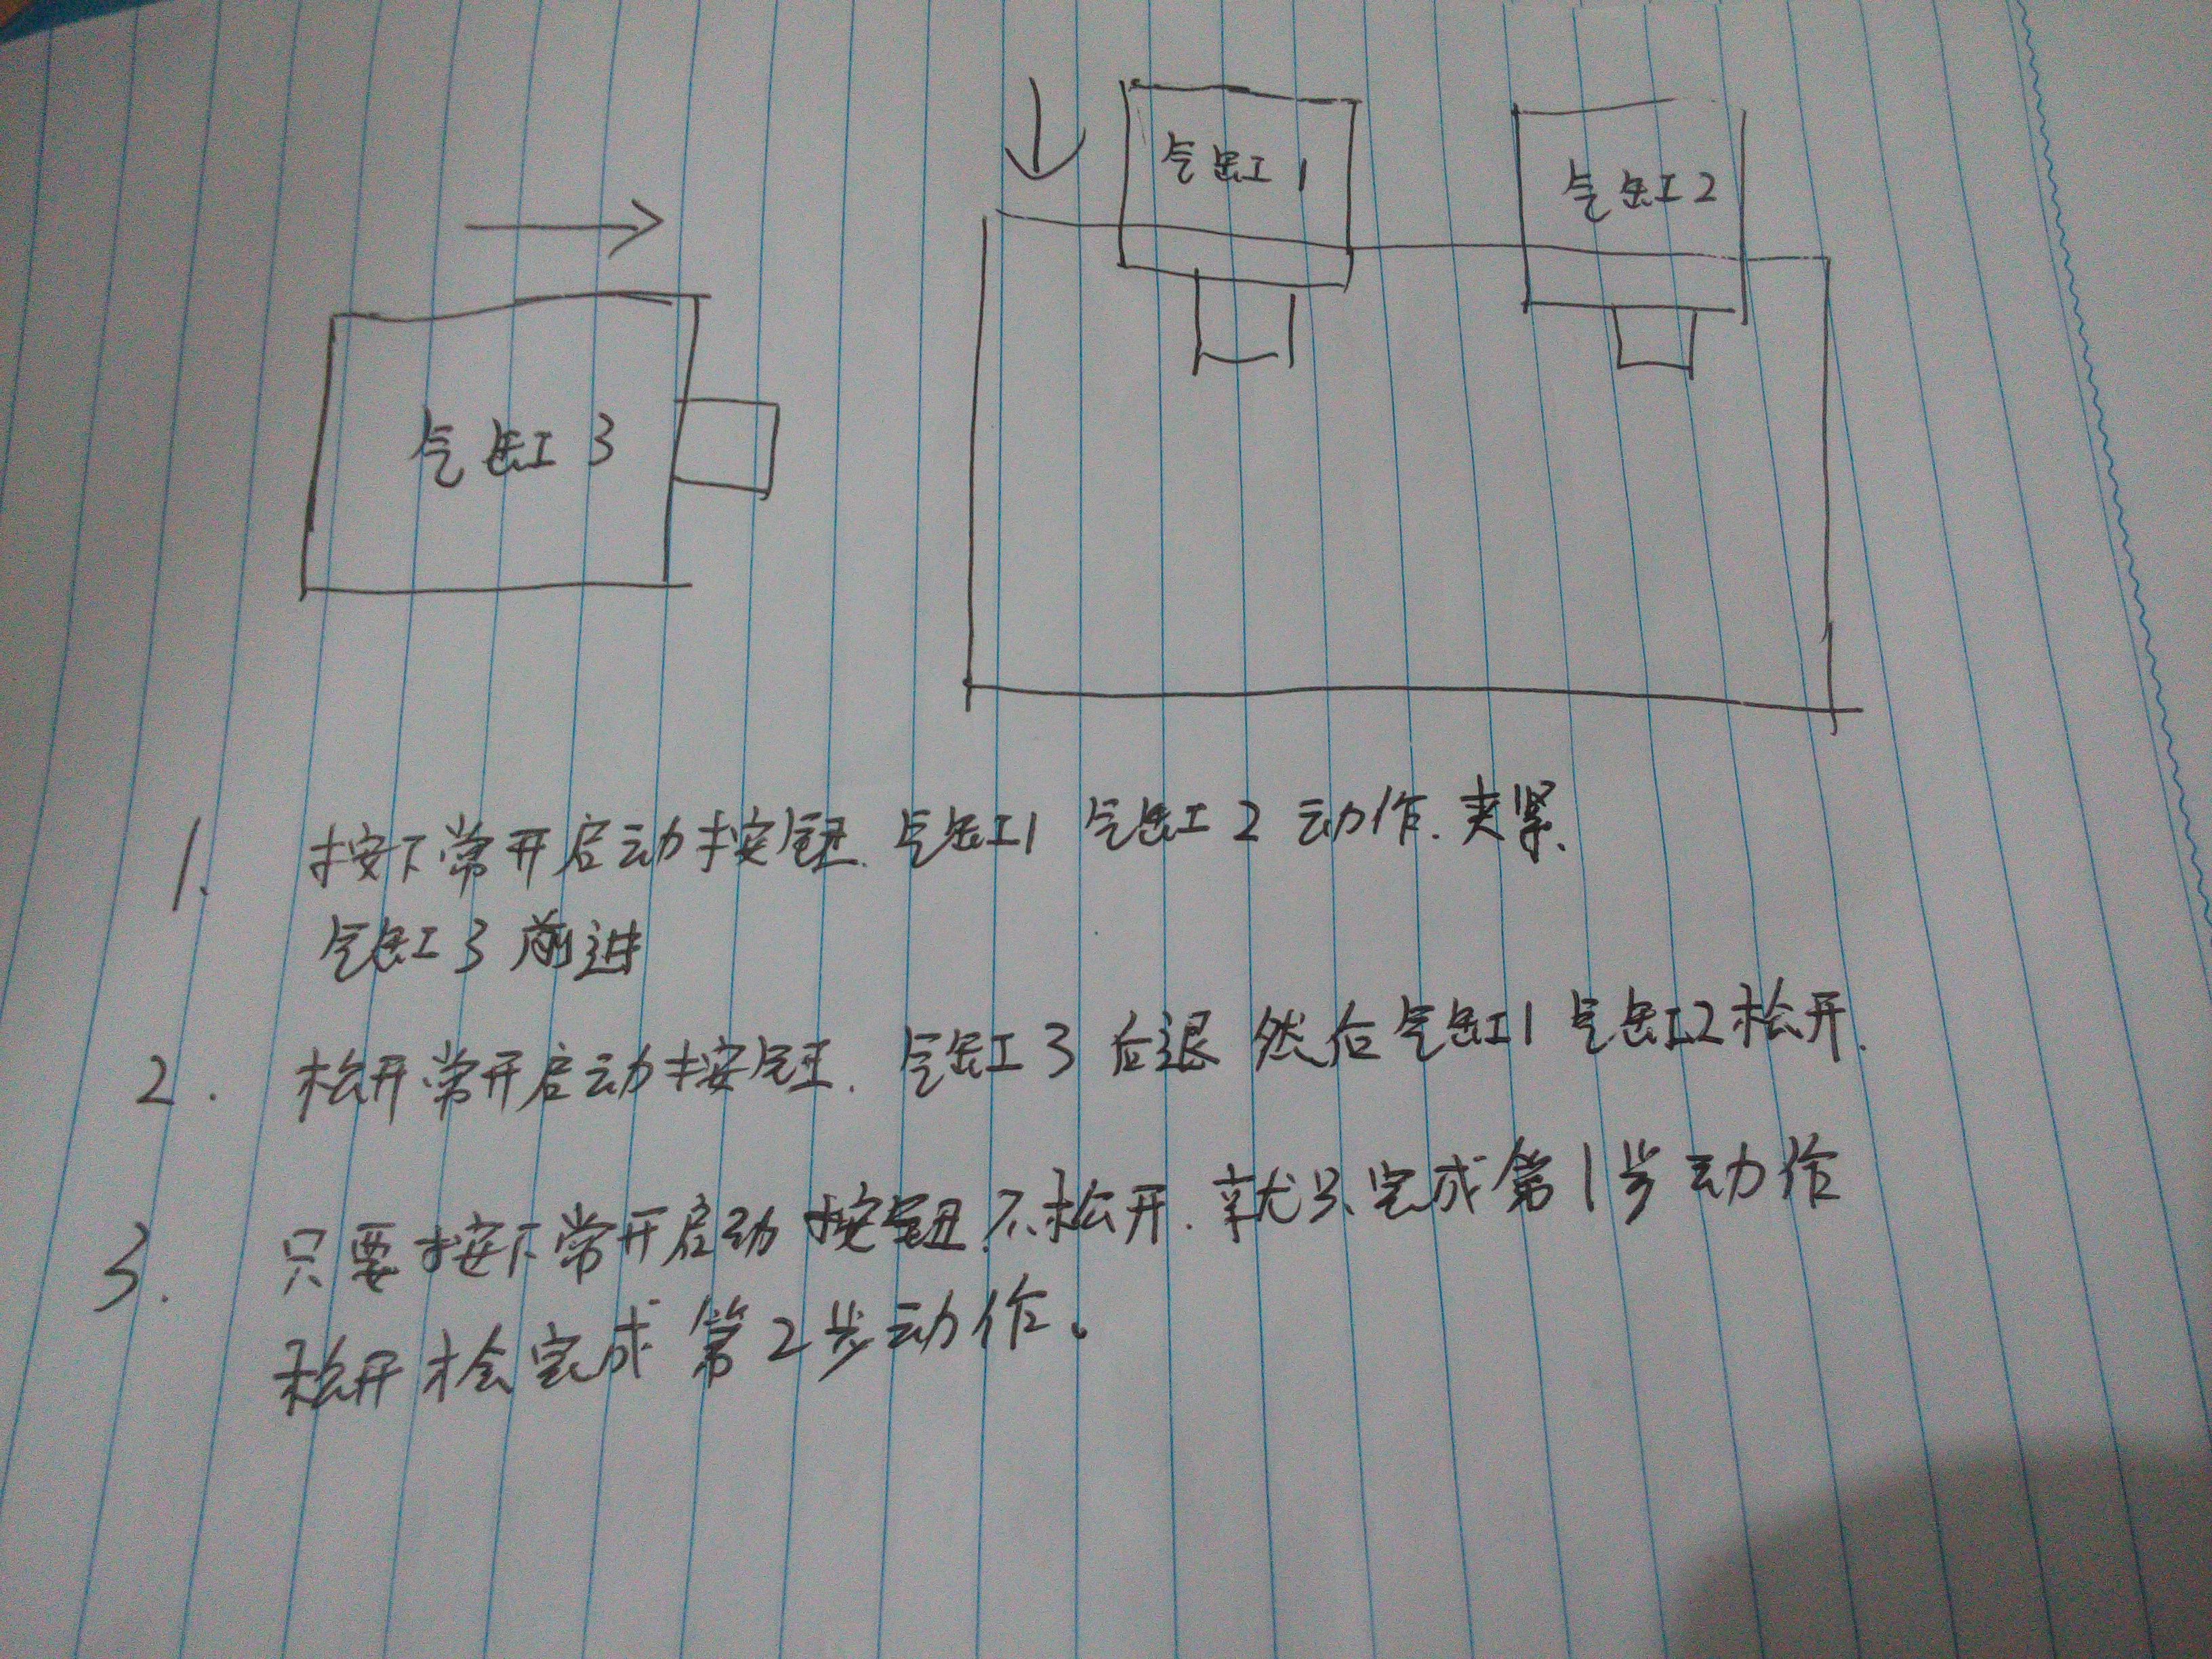 气缸1
气缸2
气缸3
1. 按下常开启动按钮. 气缸1 气缸2 动作. 夹紧.
气缸3 前进
2. 松开常开启动按钮. 气缸3 后退 然后气缸1 气缸2松开.
3. 只要按下常开启动按钮.不松开. 就只完成第1步动作
松开才会完成第2步动作。